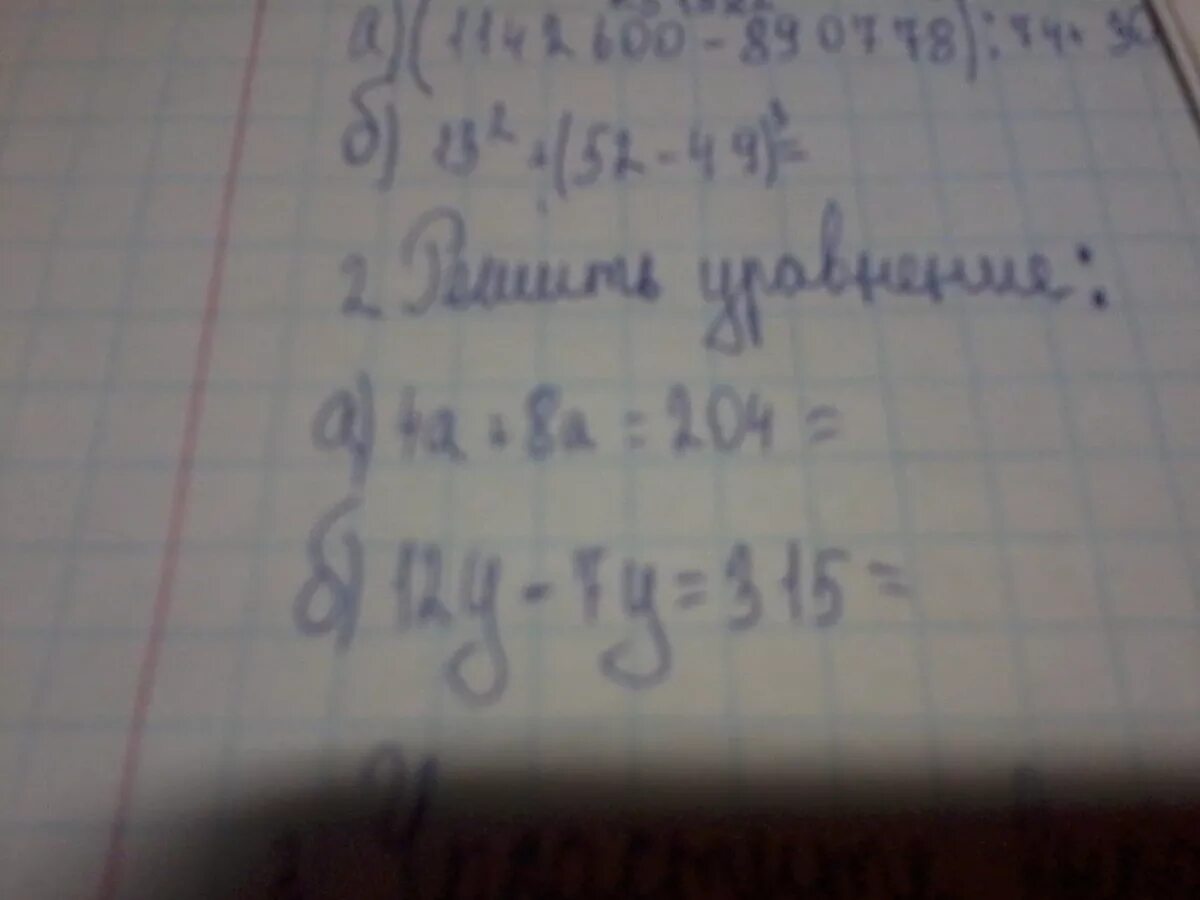 а) (1142600 - 890778) : 74 +
б) 13² + (52 - 49)³ =
2 Решить уравнение:
а) 4а + 8а = 204 =
б) 12у - 7у = 315 =